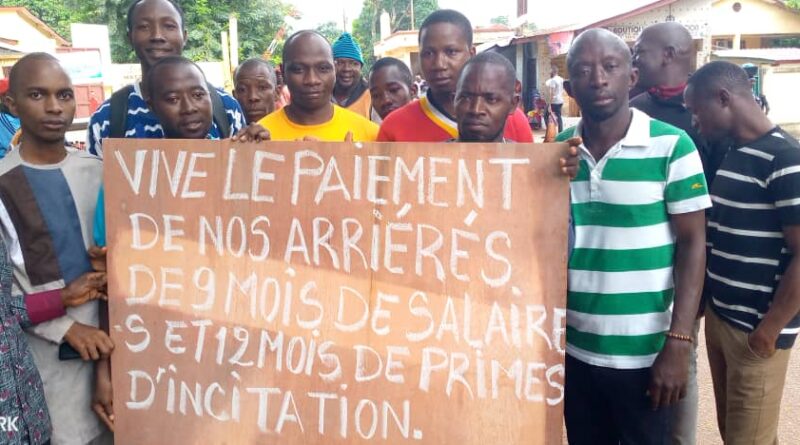 VIVE LE PAIEMENT
DE NOS ARRIÉRÉS
DE 9 MOIS DE SALAIRE
-S ET 12 MOIS DE PRIMES
D'INCITATION.
BOUTIQUE
RK